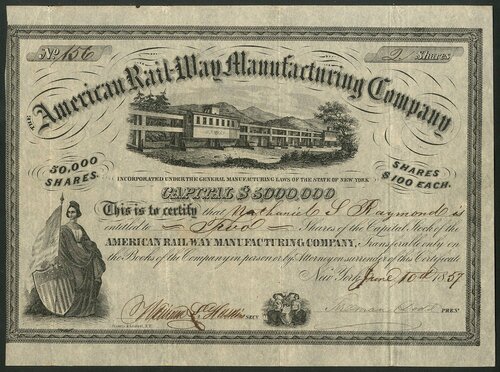 No. 156
2 Shares
THE American Rail-Way Manufacturing Company
50,000 SHARES.
SHARES $100 EACH.
INCORPORATED UNDER THE GENERAL MANUFACTURING LAWS OF THE STATE OF NEW YORK
CAPITAL $5000,000
This is to certify that Nathaniel S Raymond is
entitled to Two Shares of the Capital Stock of the
AMERICAN RAILWAY MANUFACTURING COMPANY, Transferable only on
the Books of the Company in person or by Attorney on surrender of this Certificate
New York June 10th 1857
SECY
PRES